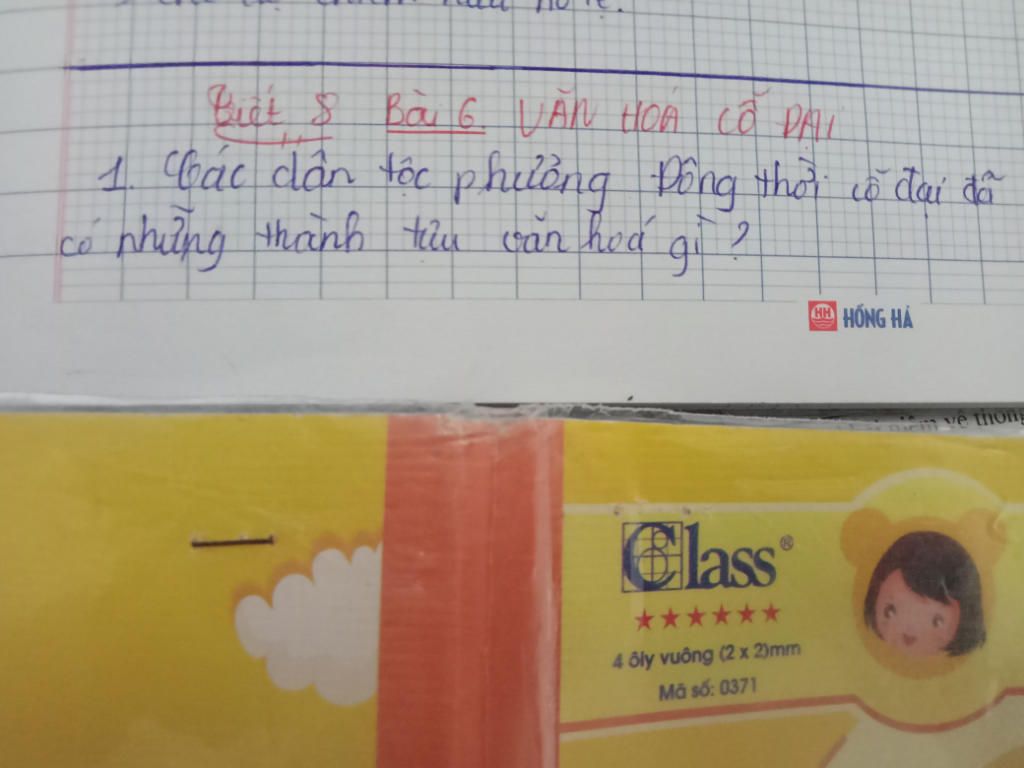 Tiết 8 Bài 6 VĂN HOÁ CỔ ĐẠI
1. Các dân tộc phương Đông thời cổ đại đã
có những thành tựu văn hoá gì?
HH HỒNG HÀ
niệm về thông
Class®
4 ôly vuông (2 x 2)mm
Mã số: 0371